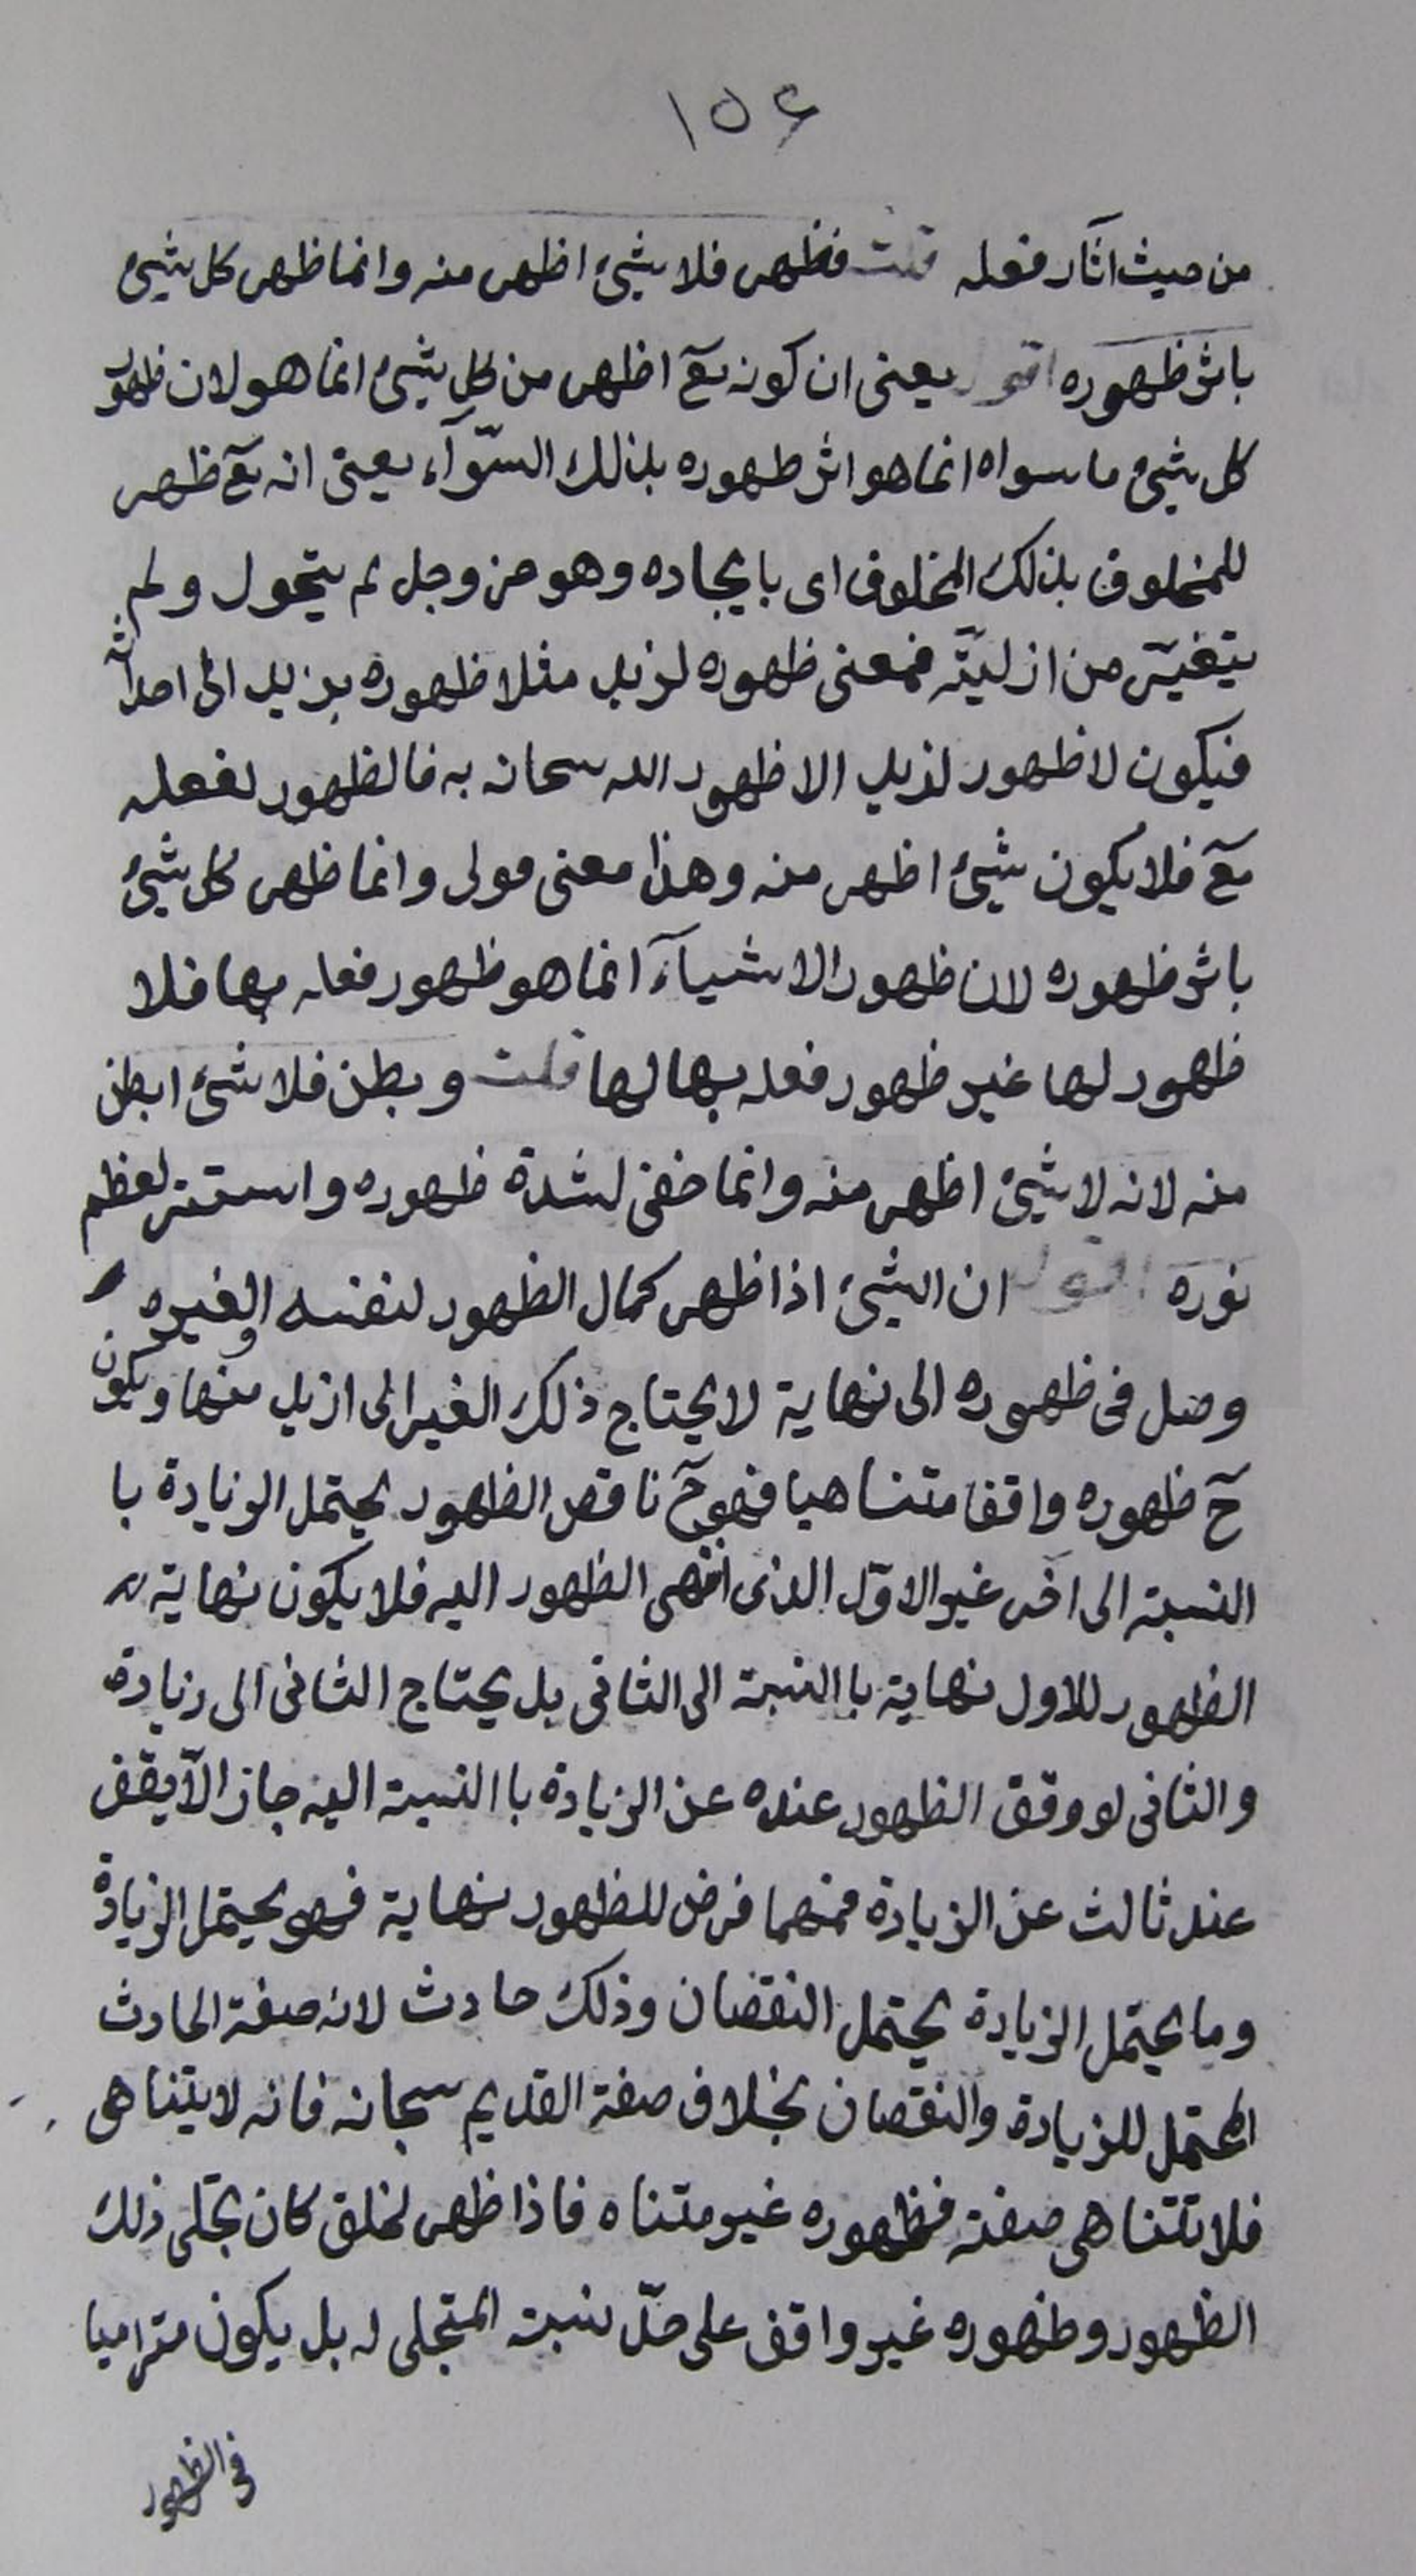 ١٥٤
من حيث اثار فعله قلت فظهر فلا شیئ اظهر منه وانما ظهر كل شیئ
باثر ظهوره اقول يعنی ان كونه تع اظهر من كل شیئ انما هو لان ظهور
كل شیئ ما سواه انما هو اثر ظهوره بذلك السّوآء يعنی انه تع ظهر
للمخلوق بذلك المخلوق ای بايجاده وهو عز وجل لم يتحول ولم
يتغيّر من ازليّته فمعنی ظهوره لزيد مثلا ظهوره بزيد ای احداثه
فيكون لا ظهور لزيد الا ظهور الله سبحانه به فالظهور لفعله
تع فلا يكون شیئ اظهر منه وهذا معنی قولی وانما ظهر كل شیئ
باثر ظهوره لان ظهور الاشيآء انما هو ظهور فعله بها فلا
ظهور لها غير ظهور فعله بها لها قلت وبطن فلا شیئ ابطن
منه لانه لا شیئ اظهر منه وانما خفی لشدة ظهوره واستتر لعظم
نوره اقول ان الشیئ اذا ظهر كمال الظهور لنفسه او لغيره
وصل فی ظهوره الی نهاية لا يحتاج ذلك الغير الی ازيد منها ويكون
حٓ ظهوره واقفا متناهيا فهو حٓ ناقص الظهور يحتمل الزيادة با
النسبة الی اخر غير الاوّل الذی انتهی الظهور اليه فلا يكون نهاية
الظهور للاول نهاية با النسبة الی الثانی بل يحتاج الثانی الی زيادة
والثانی لو وقف الظهور عنده عن الزيادة با النسبة اليه جاز الّا يقف
عند ثالث عن الزيادة فمهما فرض للظهور نهاية فهو يحتمل الزيادة
وما يحتمل الزيادة يحتمل النقصان وذلك حادث لانه صفة الحادث
المحتمل للزيادة والنقصان بخلاف صفة القديم سبحانه فانه لا يتناهی
فلا تتناهی صفته فظهوره غير متناه فاذا ظهر لخلق كان تجلّی ذلك
الظهور وظهوره غير واقف علی حدّ نسبة المتجلی له بل يكون متراميا
فی الظهور